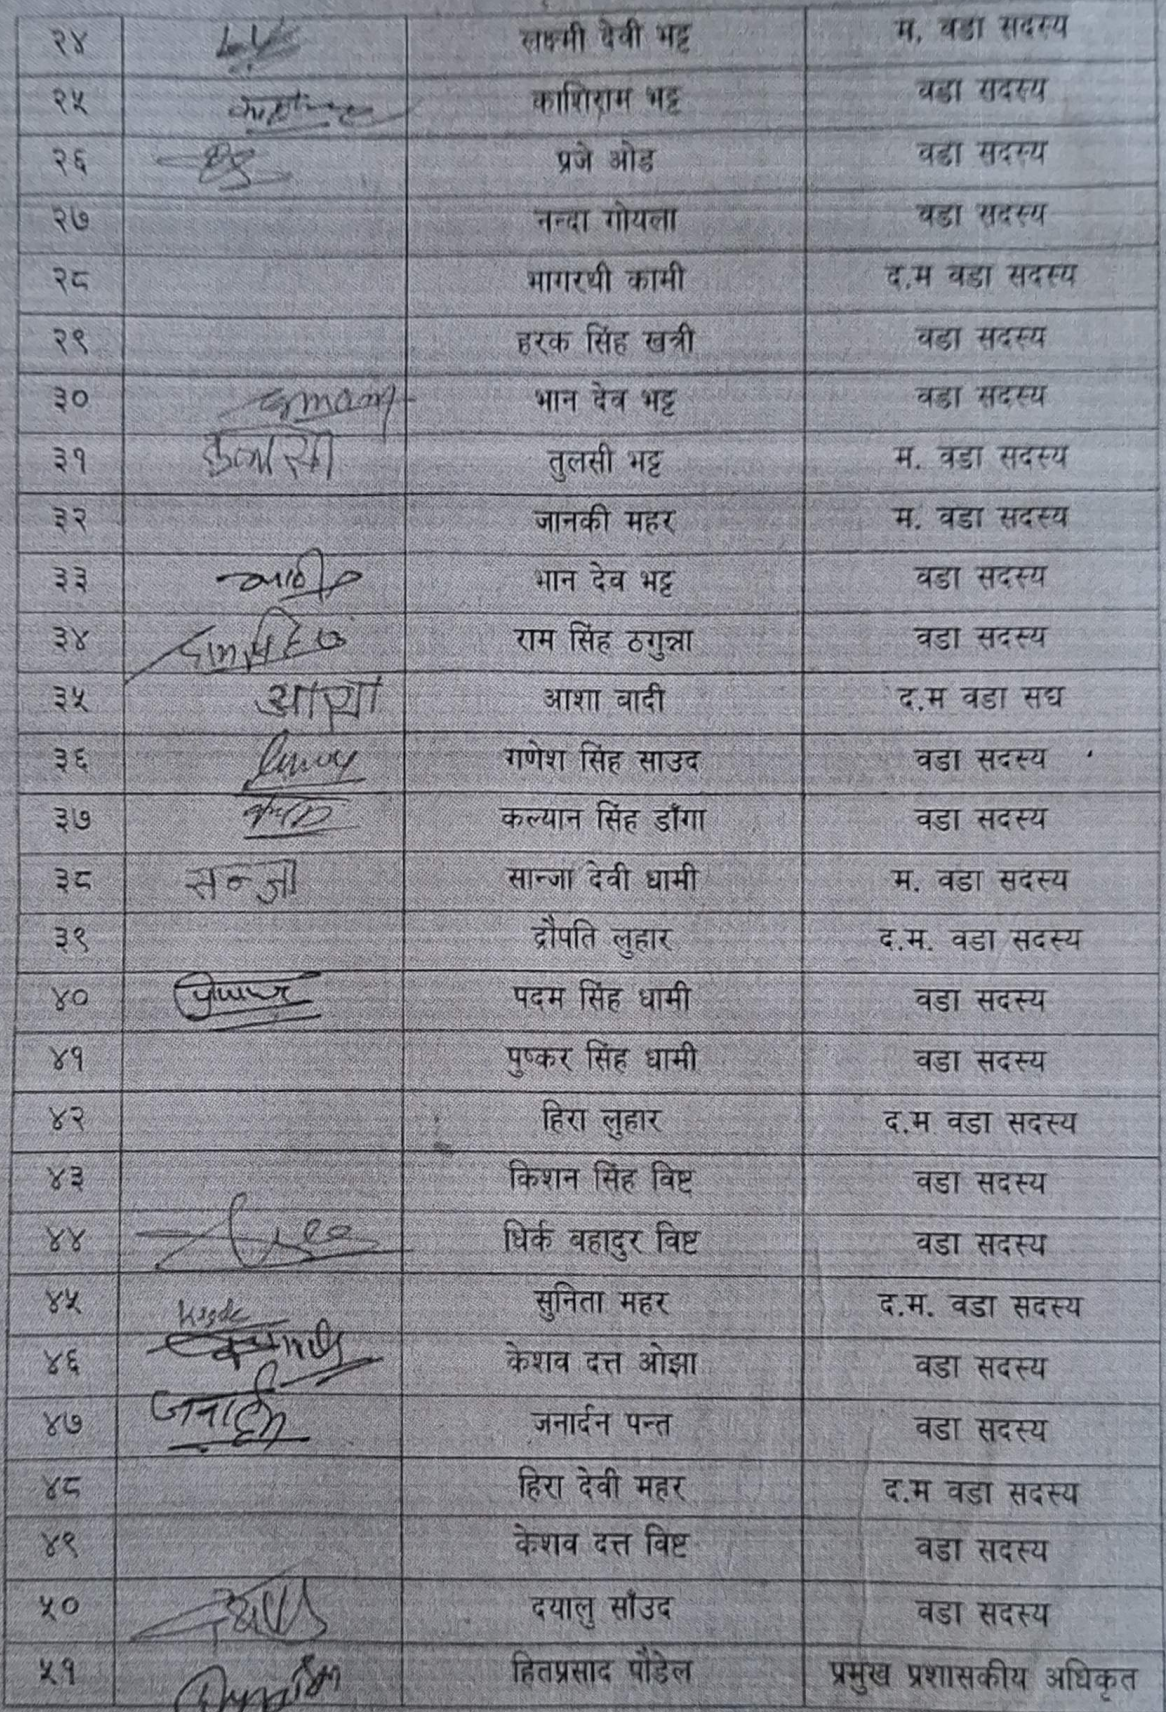 २४ लक्ष्मी देवी भट्ट म. वडा सदस्य
२५ काशिराम भट्ट वडा सदस्य
२६ प्रजे ओड वडा सदस्य
२७ नन्दा गोयला वडा सदस्य
२८ भागरथी कामी द.म वडा सदस्य
२९ हरक सिंह खत्री वडा सदस्य
३० भान देव भट्ट वडा सदस्य
३१ तुलसी भट्ट म. वडा सदस्य
३२ जानकी महर म. वडा सदस्य
३३ भान देव भट्ट वडा सदस्य
३४ राम सिंह ठगुन्ना वडा सदस्य
३५ आशा आशा वादी द.म वडा सद्य
३६ गणेश सिंह साउद वडा सदस्य
३७ कल्यान सिंह डाँगा वडा सदस्य
३८ सन्जा सान्जा देवी धामी म. वडा सदस्य
३९ द्रौपति लुहार द.म. वडा सदस्य
४० पदम सिंह धामी वडा सदस्य
४१ पुष्कर सिंह धामी वडा सदस्य
४२ हिरा लुहार द.म वडा सदस्य
४३ किशन सिंह विष्ट वडा सदस्य
४४ धिर्क बहादुर विष्ट वडा सदस्य
४५ सुनिता महर द.म. वडा सदस्य
४६ केशव दत्त ओझा वडा सदस्य
४७ जनार्दन पन्त वडा सदस्य
४८ हिरा देवी महर द.म वडा सदस्य
४९ केशव दत्त विष्ट वडा सदस्य
५० दयालु साँउद वडा सदस्य
५१ हितप्रसाद पौडेल प्रमुख प्रशासकीय अधिकृत